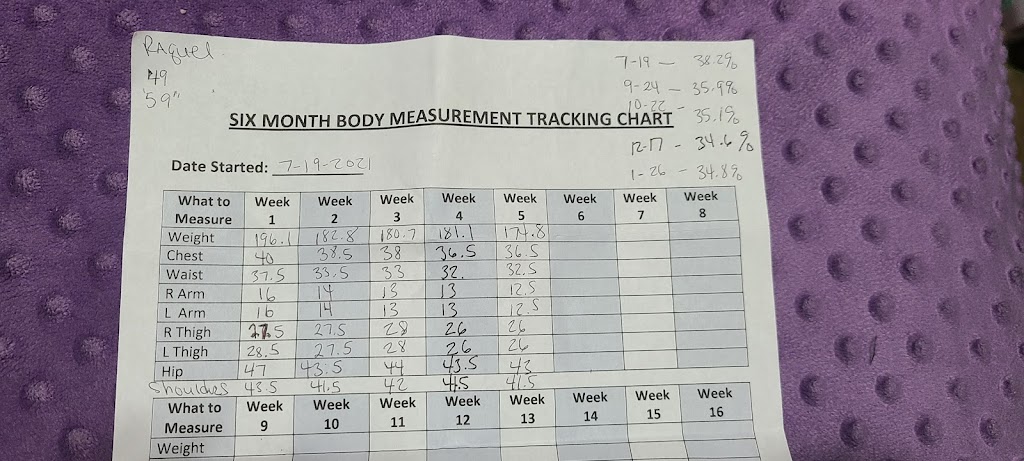 Raquel
49
5'9"
7-19 - 38.2%
9-24 - 35.9%
10-22 - 35.1%
12-17 - 34.6%
1-26 - 34.8%
SIX MONTH BODY MEASUREMENT TRACKING CHART
Date Started: 7-19-2021
What to Measure Week 1 Week 2 Week 3 Week 4 Week 5 Week 6 Week 7 Week 8
Weight 196.1 182.8 180.7 181.1 174.8
Chest 40 38.5 38 36.5 36.5
Waist 37.5 33.5 33 32. 32.5
R Arm 16 14 13 13 12.5
L Arm 16 14 13 13 12.5
R Thigh 27.5 27.5 28 26 26
L Thigh 28.5 27.5 28 26 26
Hip 47 43.5 44 43.5 43
Shoulders 43.5 41.5 42 41.5
What to Measure Week 9 Week 10 Week 11 Week 12 Week 13 Week 14 Week 15 Week 16
Weight